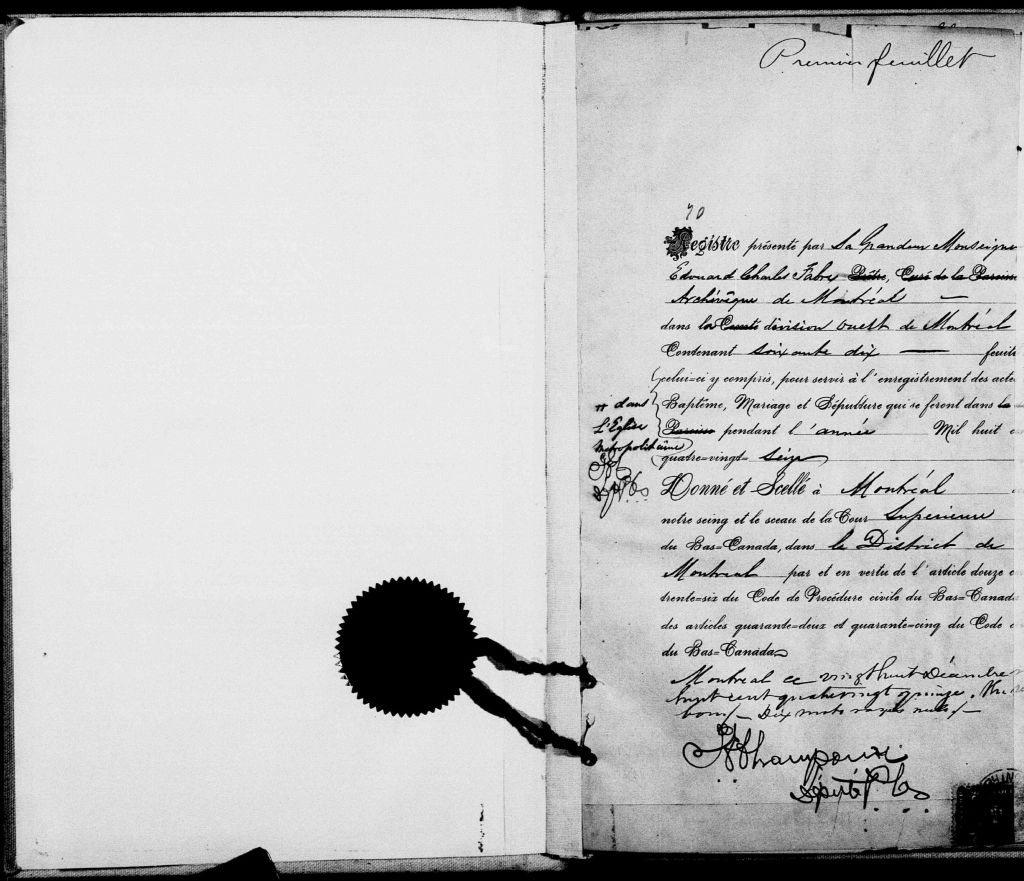 Premier feuillet
70
Registre présenté par Sa Grandeur Monseigneu
Edouard Charles Fabre Prêtre, Curé de la Paroisse
Archévêque de Montréal —
dans le Comté division ouest de Montréal
Contenant soixante dix — feuille
celui-ci y compris, pour servir à l'enregistrement des acte
Baptême, Mariage et Sépulture qui se feront dans la
Paroisse pendant l'année Mil huit c
quatre-vingt- seize
dans
L'Eglise
Métropolitaine
Donné et Scellé à Montréal
notre seing et le sceau de la Cour Superieure
du Bas-Canada, dans le District de
Montreal par et en vertu de l'article douze c
trente-six du Code de Procédure civile du Bas-Canada
des articles quarante-deux et quarante-cinq du Code c
du Bas-Canada
Montreal ce vingt huit Décembre
huit cent quatrevingt quinze.
bon/— Dix mots rayés nuls/—
Député P.